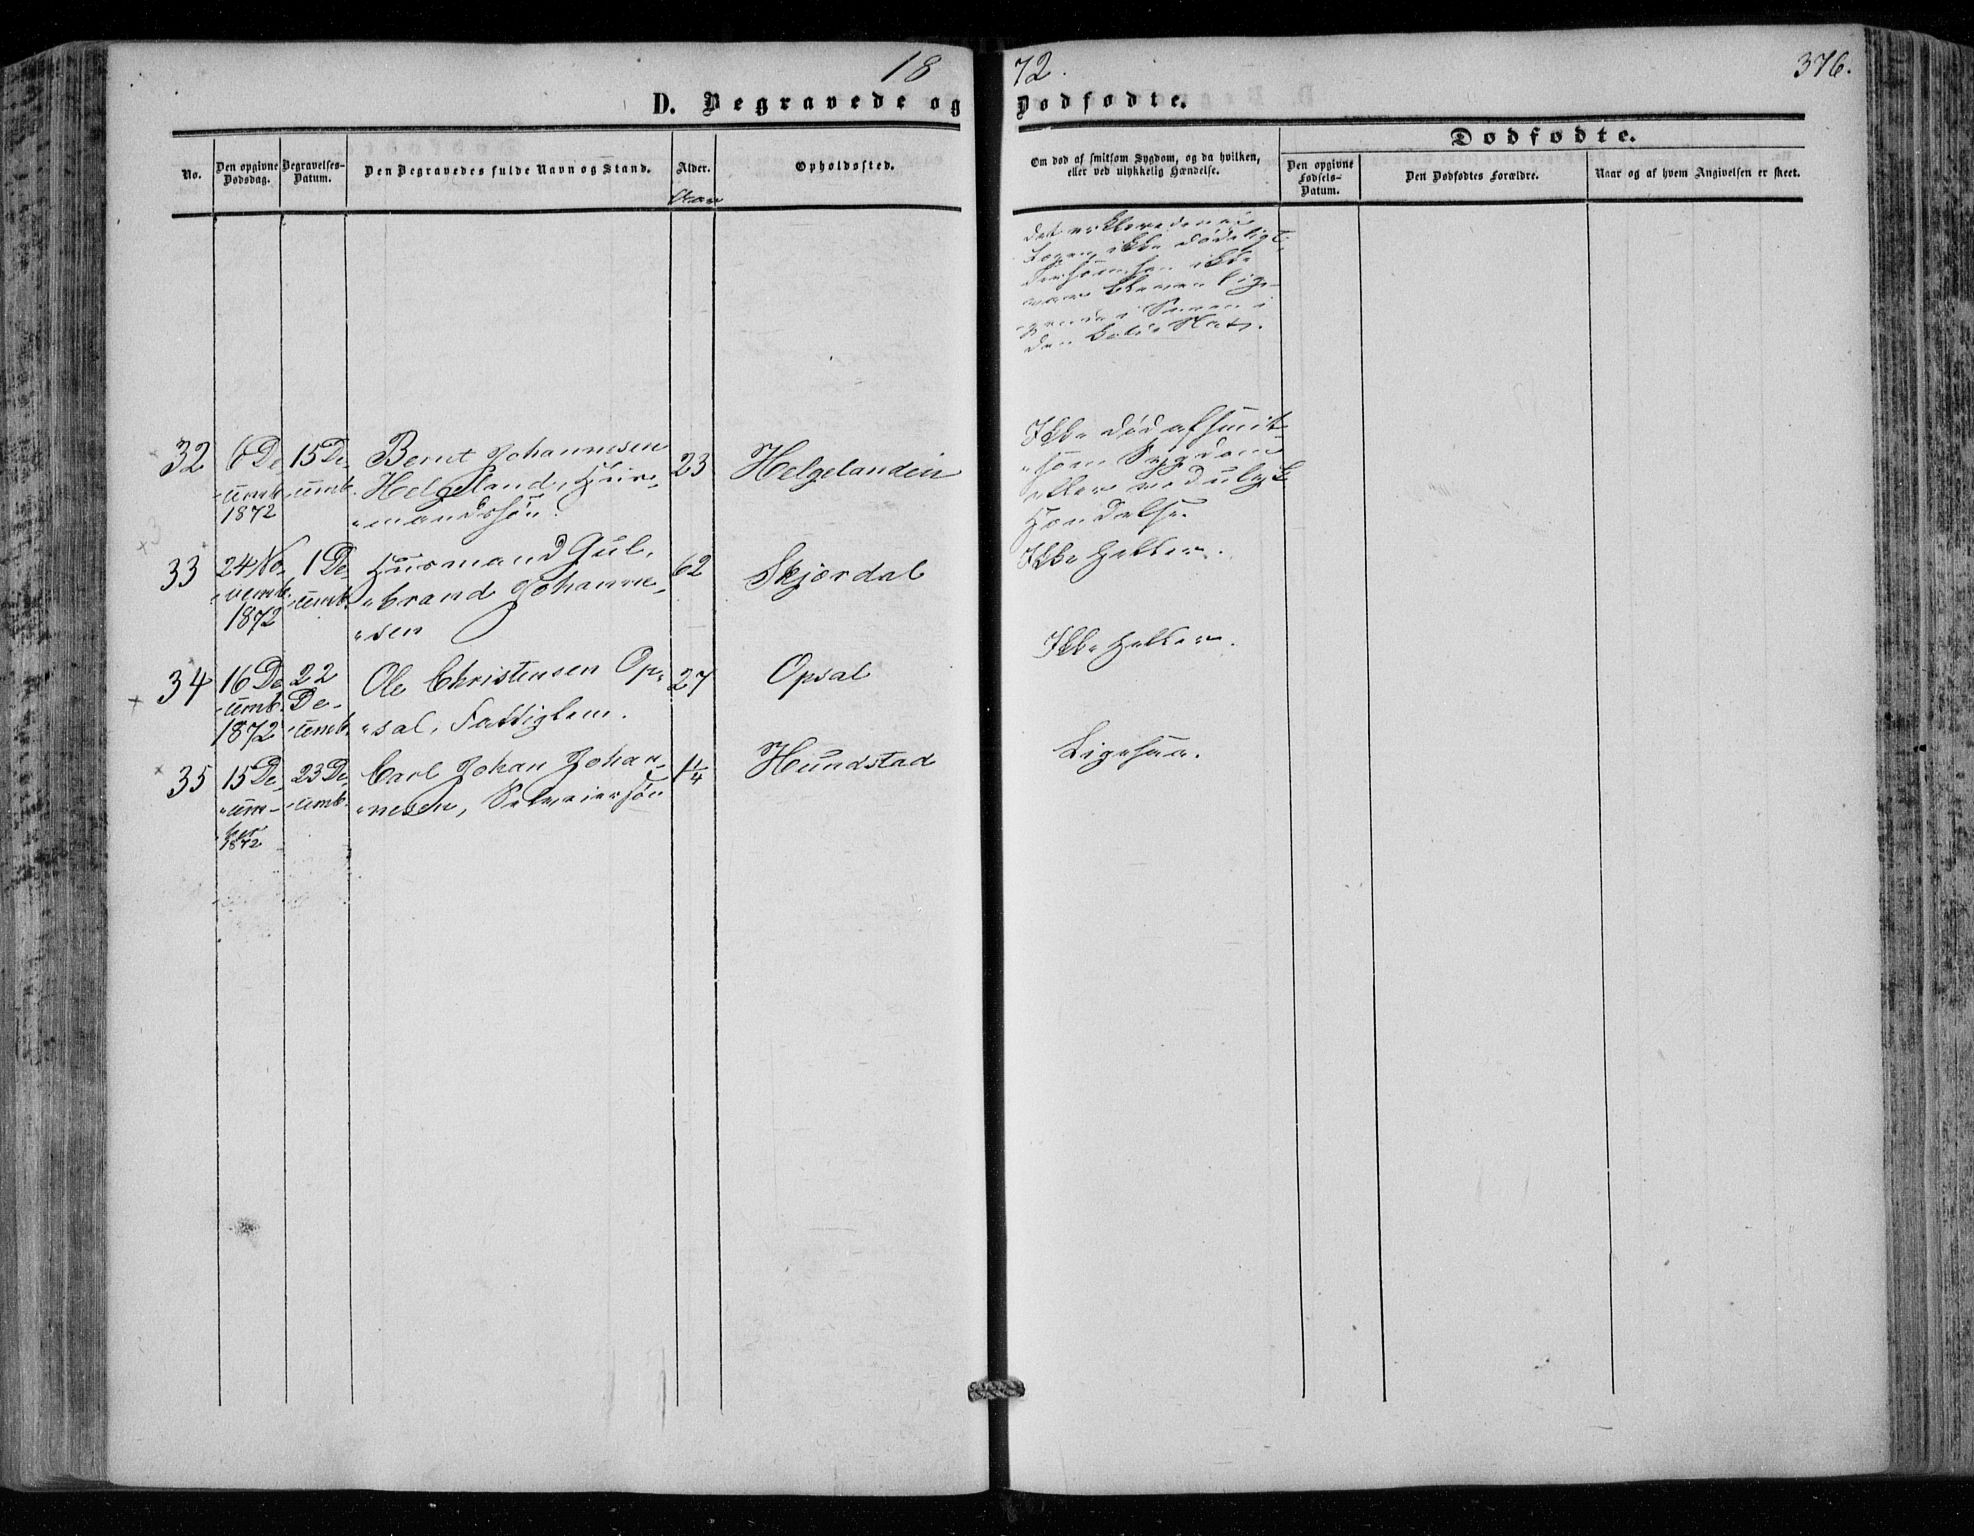 18
72.
376.
D. Begravede og
Dødfødte.
No.
Den opgivne Dødsdag.
Begravelses-Datum.
Den Begravedes fulde Navn og Stand.
Alder.
Opholdssted.
Om død af smitsom Sygdom, og da hvilken,
eller ved ulykkelig Hændelse.
Dødfødte.
Den opgivne Fødsels-Datum.
Den Dødfødtes Forældre.
Naar og af hvem Angivelsen er skeet.
ikke dødeligt,
ikke
i
32
6 De-
-cemb.
1872
15 De-
-cemb.
Bernt Johannesen
Helgeland, Hus-
-mandssøn.
23
Helgelandein
Ikke død af smit-
-som Sygdom
eller ved ulyk
Hændelse.
33
24 No-
-vemb.
1872
1 De-
-cemb.
Husmand Gul-
-brand Johanne-
-sen
62
Skjørdal
Ikke heller.
34
16 De-
-cemb.
1872
22
De-
-cemb.
Ole Christensen Op-
-sal, Fattiglem.
27
Opsal
Ikke heller.
35
15 De-
-cem-
-ber
1872
23 De-
-cemb.
Carl Johan Johan-
-nesen, Selveiersøn
1 1/4
Hundstad
Ligesaa.